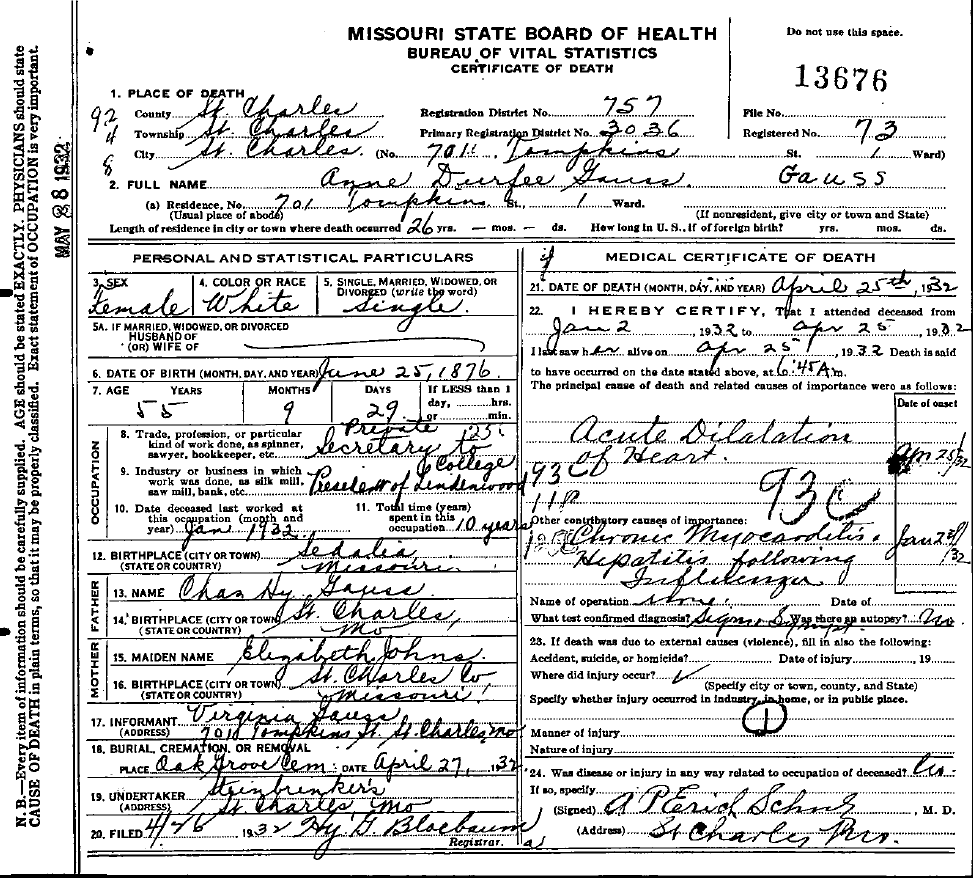 MISSOURI STATE BOARD OF HEALTH
BUREAU OF VITAL STATISTICS
CERTIFICATE OF DEATH
Do not use this space.
13676
1. PLACE OF DEATH
County St. Charles Registration District No. 757 File No.
Township St. Charles Primary Registration District No. 3036 Registered No. 73
City St. Charles. (No. 701 Tompkins St. 1 Ward)
92
4
8
2. FULL NAME Anne Durfee Gauss. Gauss
(a) Residence, No. 701 Tompkins St., 1 Ward.
(Usual place of abode) (If nonresident, give city or town and State)
Length of residence in city or town where death occurred 26 yrs. — mos. — ds. How long in U. S., if of foreign birth? yrs. mos. ds.
PERSONAL AND STATISTICAL PARTICULARS
3. SEX Female
4. COLOR OR RACE White
5. SINGLE, MARRIED, WIDOWED, OR DIVORCED (write the word) Single.
5A. IF MARRIED, WIDOWED, OR DIVORCED
HUSBAND OF
(OR) WIFE OF
6. DATE OF BIRTH (MONTH, DAY, AND YEAR) June 25, 1876.
7. AGE YEARS MONTHS DAYS If LESS than 1
55 9 29 day, hrs.
or min.
OCCUPATION
8. Trade, profession, or particular kind of work done, as spinner, sawyer, bookkeeper, etc. Private Secretary to
9. Industry or business in which work was done, as silk mill, saw mill, bank, etc. President of Lindenwood College
10. Date deceased last worked at this occupation (month and year) Jan 1932
11. Total time (years) spent in this occupation 10 years
12. BIRTHPLACE (CITY OR TOWN) Sedalia
(STATE OR COUNTRY) Missouri
FATHER
13. NAME Chas Hy. Gauss
14. BIRTHPLACE (CITY OR TOWN) St. Charles,
(STATE OR COUNTRY) Mo
MOTHER
15. MAIDEN NAME Elizabeth Johns.
16. BIRTHPLACE (CITY OR TOWN) St. Charles Co
(STATE OR COUNTRY) Missouri
17. INFORMANT Virginia Gauss
(ADDRESS) 701 Tompkins St. St. Charles, Mo
18. BURIAL, CREMATION, OR REMOVAL
PLACE Oak Grove Cem. DATE April 27, 1932
19. UNDERTAKER Steinbrinker's
(ADDRESS) St. Charles, Mo
20. FILED 4/26 1932 Hy. G Bloebaum
Registrar.
MEDICAL CERTIFICATE OF DEATH
21. DATE OF DEATH (MONTH, DAY, AND YEAR) April 25th, 1932
22. I HEREBY CERTIFY, That I attended deceased from
Jan 2 1932 to Apr 25 1932
I last saw her alive on Apr 25, 1932 Death is said
to have occurred on the date stated above, at 6:45 A m.
The principal cause of death and related causes of importance were as follows:
Date of onset
Acute Dilatation
of Heart. Apr 25/32
93c
Other contributory causes of importance:
Chronic Myocarditis. Jan
Hepatitis following
Influenza
Name of operation none. Date of
What test confirmed diagnosis? Signs Sympt. Was there an autopsy? No.
23. If death was due to external causes (violence), fill in also the following:
Accident, suicide, or homicide? Date of injury , 19
Where did injury occur?
(Specify city or town, county, and State)
Specify whether injury occurred in industry, in home, or in public place.
1
Manner of injury
Nature of injury
24. Was disease or injury in any way related to occupation of deceased? No
If so, specify
(Signed) A P Erich Schulz, M. D.
(Address) St Charles Mo.
N. B.—Every item of information should be carefully supplied. AGE should be stated EXACTLY. PHYSICIANS should state
CAUSE OF DEATH in plain terms, so that it may be properly classified. Exact statement of OCCUPATION is very important.
MAY 28 1932